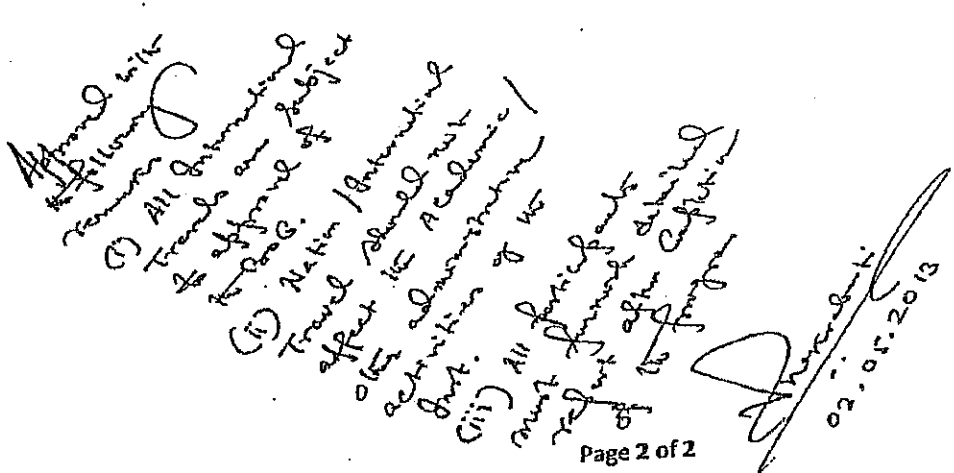 Approved with
the following
remarks
(i) All International
Travels are subject
to approval of
the BoG.
(ii) Nation / International
Travel should not
affect the Academic /
other administrative
activities of the
Inst.
(iii) All participants
must furnish detailed
report after Completion
of the program
02.05.2013
Page 2 of 2